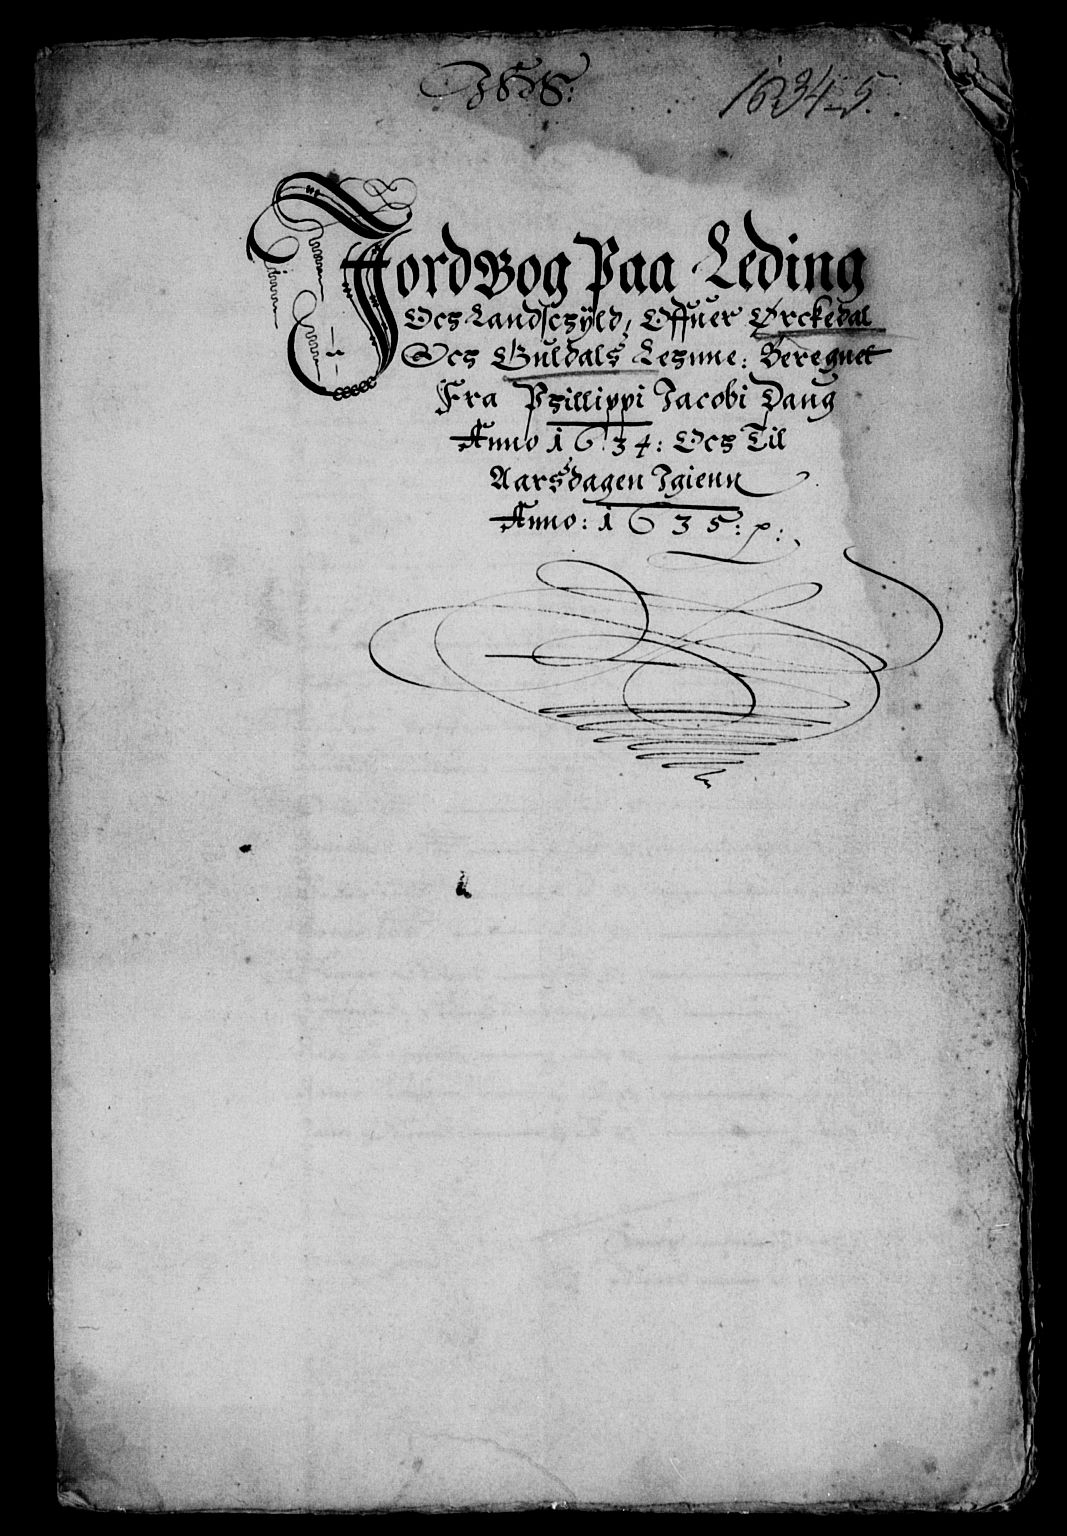 1634-5.
Jordbog Paa Leding
Och Landschÿld, Offuer Ørckedal
Och Guldals Lehnne: Beregnet
Fra Phillippi Jacobi Daug
Anno 1634: Och Til
Aarsdagen Igienn
Anno: 1635: p: